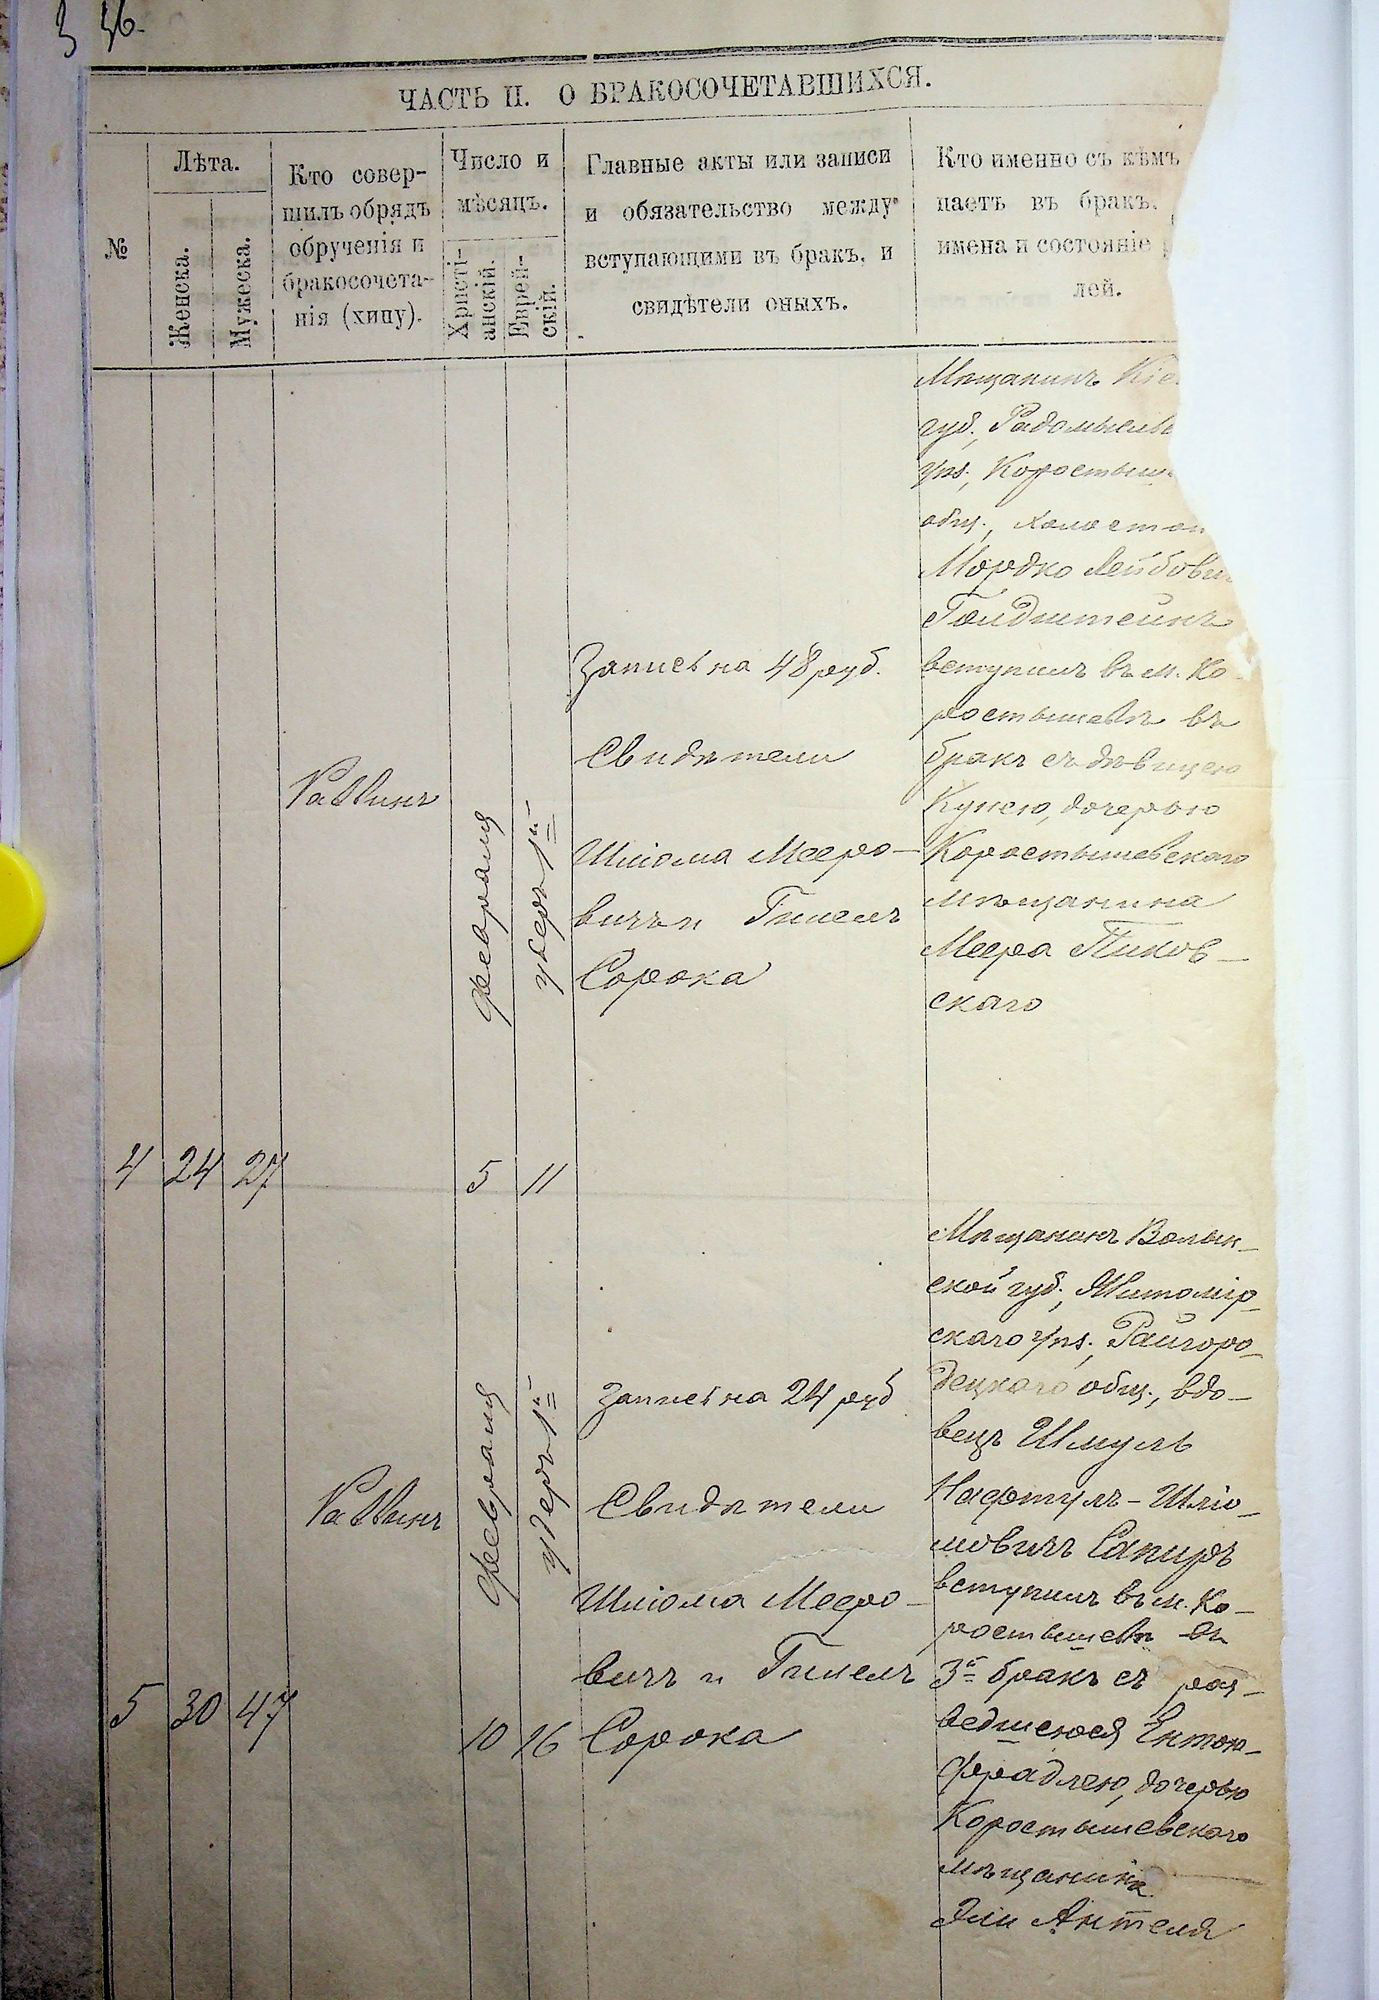 36.
ЧАСТЬ II. О БРАКОСОЧЕТАВШИХСЯ.
№
Лѣта.
Женска.
Мужеска.
Кто совер-
шилъ обрядъ
обрученія и
бракосочета-
нія (хипу).
Число и
мѣсяцъ.
Христі-
анскій.
Еврей-
скій.
Главные акты или записи
и обязательство между
вступающими въ бракъ, и
свидѣтели оныхъ.
Кто именно съ кѣмъ
паетъ въ бракъ,
имена и состояніе
лей.
4
24
27
Раввинъ
февраля
5
11
Запись на 48 руб.
Свидѣтели
Шліома Мееро-
вичъ и Гилель
Сорока
Мѣщанинъ Кіе
губ., Радомысль
уѣз., Коростыш
общ., холостой
Мордко Лейбови
Голдштейнъ
вступилъ въ м. Ко
ростышевѣ въ
бракъ съ дѣвицею
Кунею, дочерью
Коростышевскаго
мѣщанина
Меера Пиков-
скаго
5
30
47
Раввинъ
февраля
10
16
Запись на 24 руб
Свидѣтели
Шліома Мееро-
вичъ и Гилель
Сорока
Мѣщанинъ Волын-
ской губ., Житомір-
скаго уѣз., Райгоро-
децкаго общ., вдо-
вецъ Шмуль
Нафтулъ-Шліо-
мовичъ Сапиръ
вступилъ въ м. Ко-
ростышевѣ въ
3й бракъ съ раз-
ведшеюся Ентою-
Фрадлею, дочерью
Коростышевскаго
мѣщанина
Эли Антеля